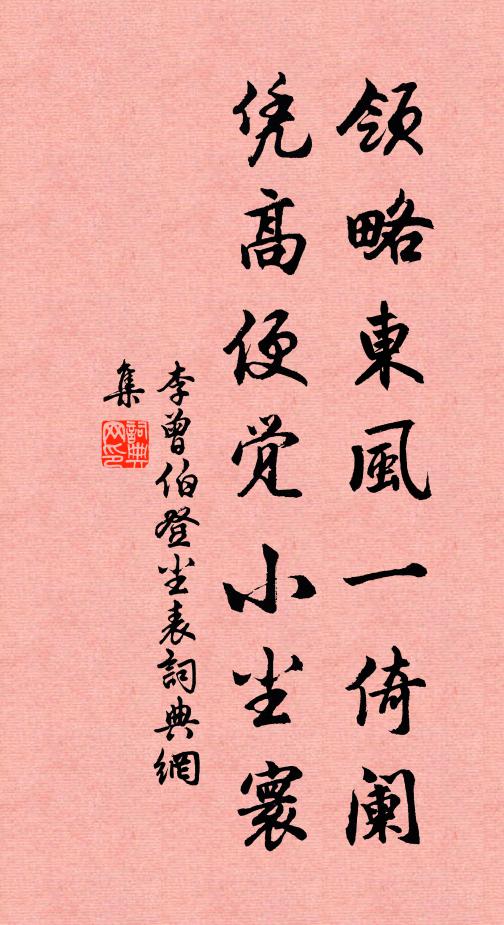 領略東風一倚阑
凭高便觉小尘寰
李曾伯登尘表詞典網
集
詞典网印